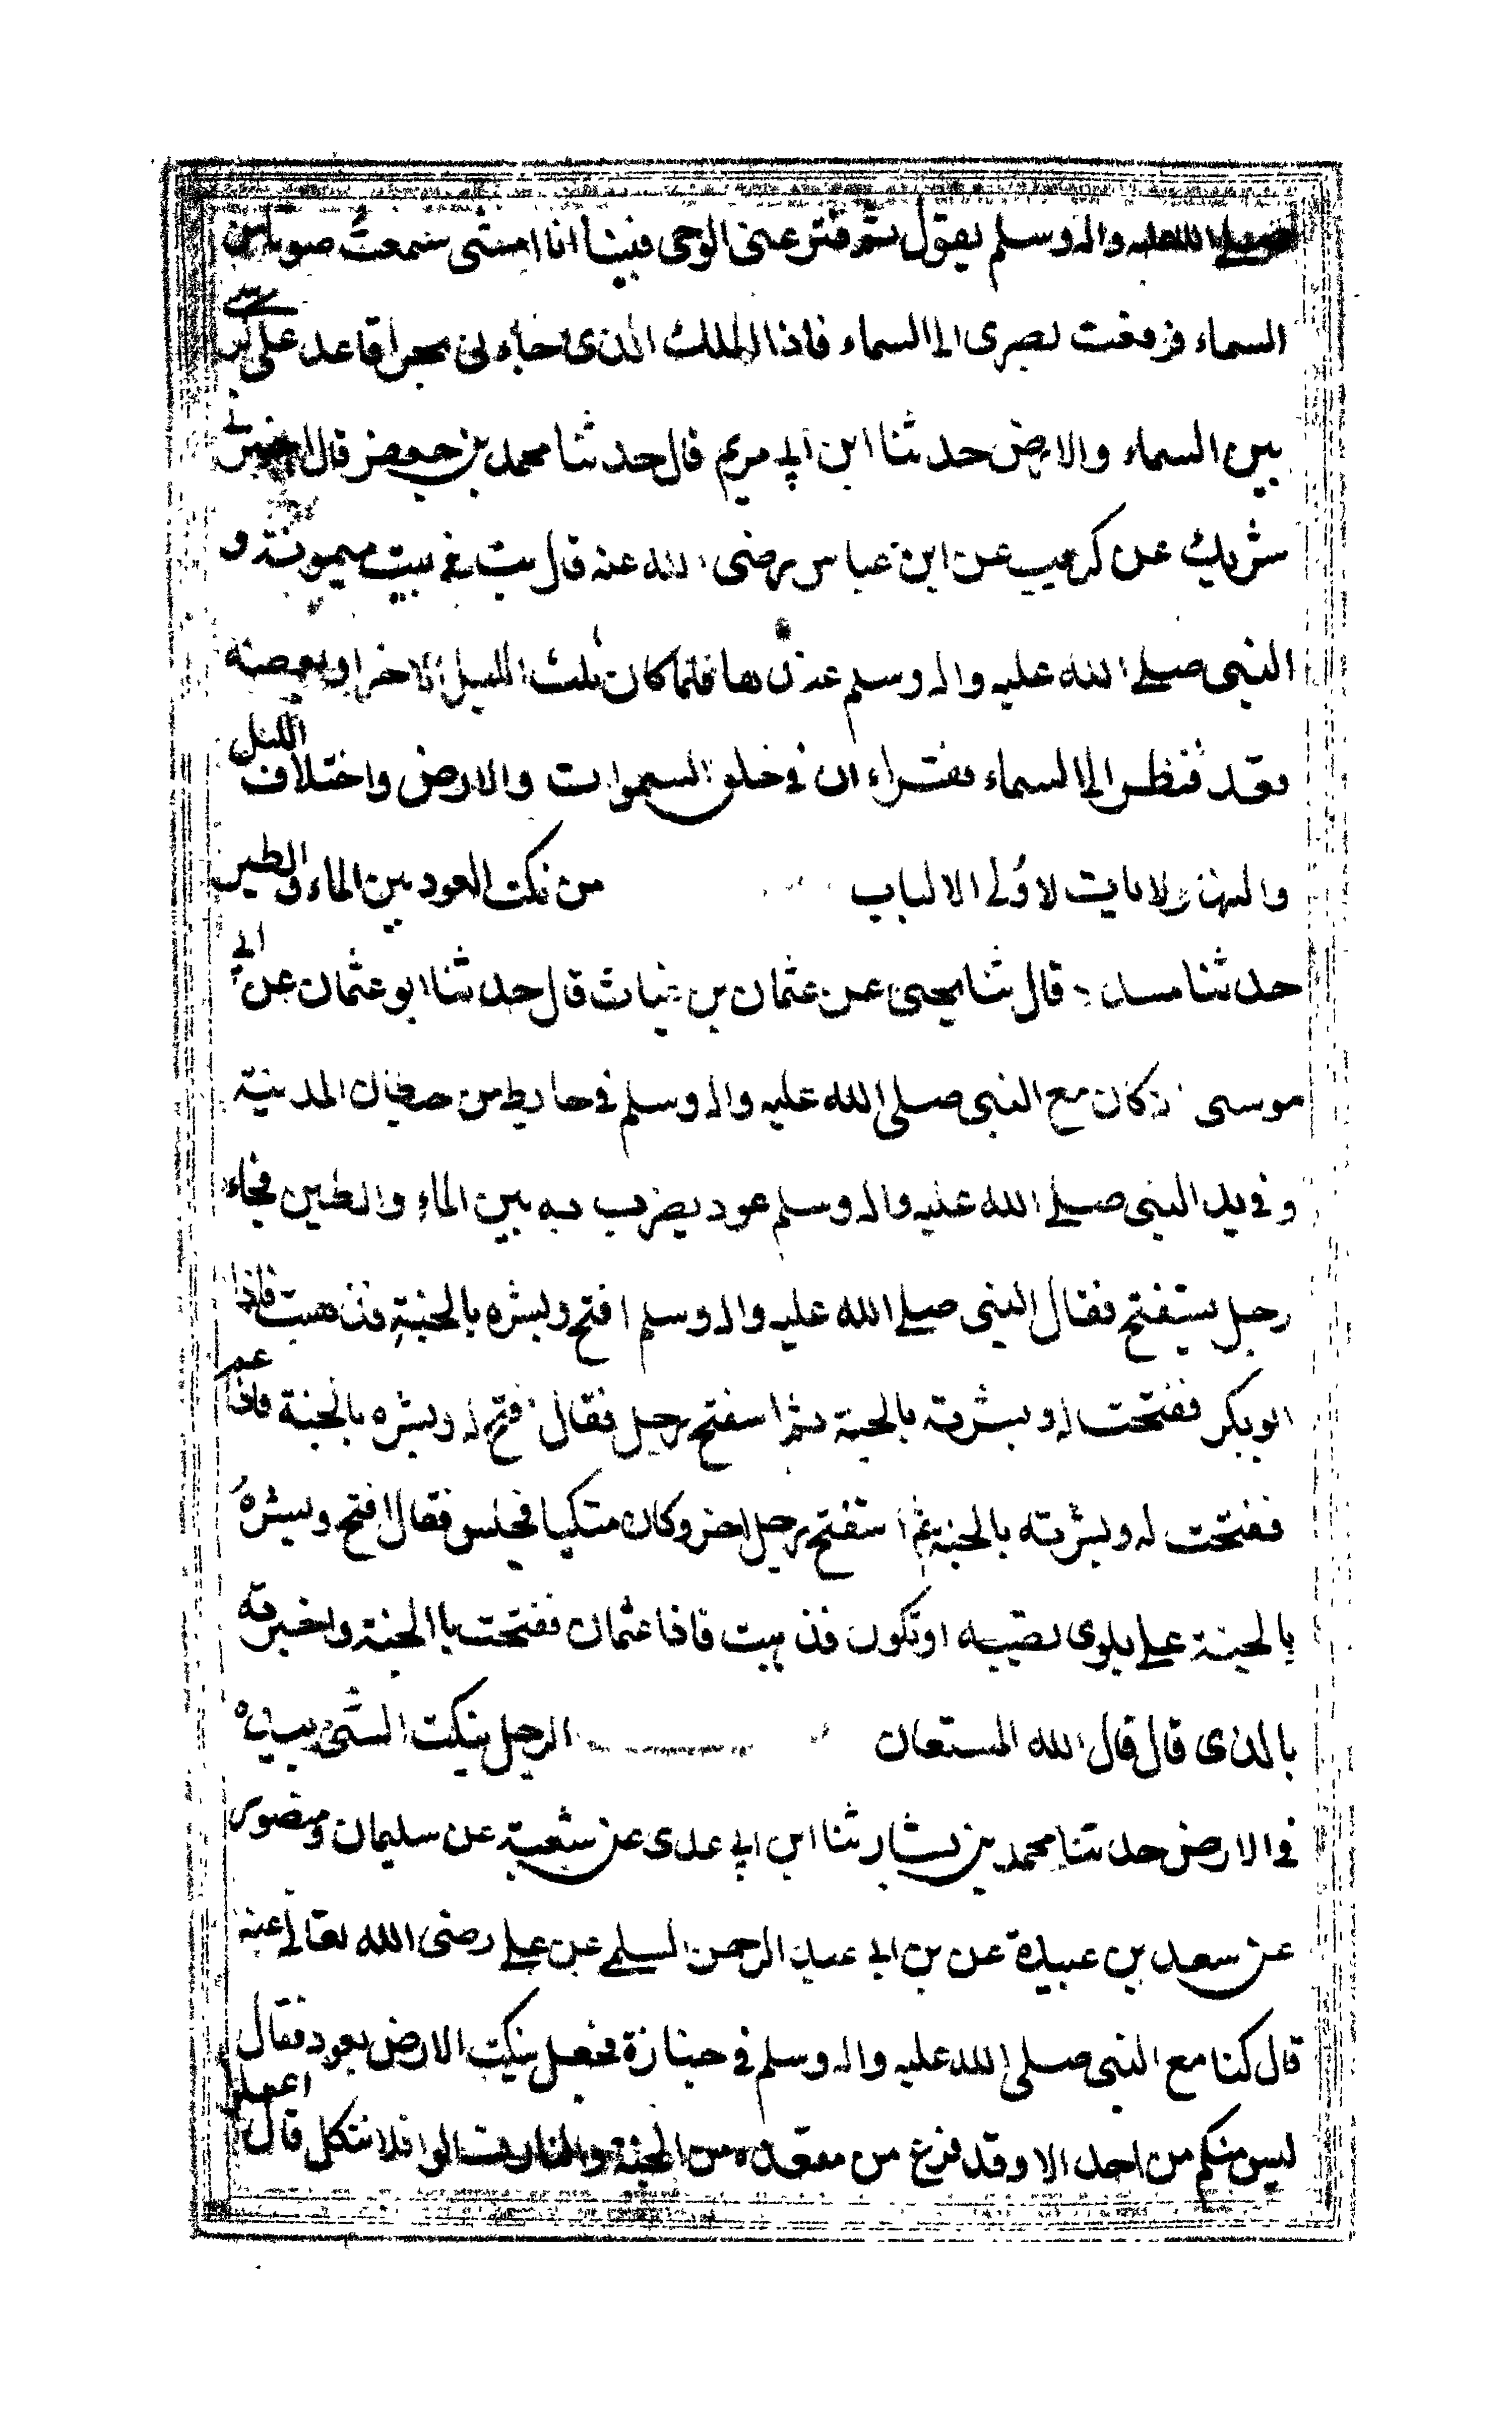 صلى الله عليه واله وسلم يقول ثم فتر عنى الوحى فبينا انا امشى سمعت صوتا من
السماء فرفعت بصرى الى السماء فاذا الملك الذى جاءنى بحرا قاعد على كرسى
بين السماء والارض حدثنا ابن ابى مريم قال حدثنا محمد بن جعفر قال اخبرنى
شريك عن كريب عن ابن عباس رضى الله عنه قال بت فى بيت ميمونة و
النبى صلى الله عليه واله وسلم عندها فلما كان ثلث الليل الاخر او بعضه
قعد فنظر الى السماء فقراء ان فى خلق السموات والارض واختلاف الليل
والنهار لايات لاولى الالباب من نكت العود بين الماء والطين
حدثنا مسدد قال ثنا يحيى عن عثمان بن غياث قال حدثنا ابو عثمان عن ابى
موسى انه كان مع النبى صلى الله عليه واله وسلم فى حايط من حيطان المدينة
وفى يد النبى صلى الله عليه واله وسلم عود يضرب به بين الماء والطين فجاء
رجل يستفتح فقال النبى صلى الله عليه واله وسلم افتح وبشره بالجنة فذهبت فاذا
ابوبكر ففتحت له وبشرته بالجنة ثم استفتح رجل فقال افتح له وبشره بالجنة فاذا عمر
ففتحت له وبشرته بالجنة ثم استفتح رجل اخر وكان متكيا فجلس فقال افتح وبشره
بالجنة على بلوى تصيبه او تكون فذهبت فاذا عثمان ففتحت باالجنة واخبرته
بالذى قال قال الله المستعان الرجل ينكت الشى بيده
فى الارض حدثنا محمد بن بشار ثنا ابن ابى عدى عن شعبة عن سليمان ومنصور
عن سعد بن عبيدة عن بن ابى عبد الرحمن السلمى عن على رضى الله تعالى عنه
قال كنا مع النبى صلى الله عليه واله وسلم فى جنازة فجعل ينكت الارض بعود فقال
ليس منكم من احد الا وقد فرغ من مقعده من الجنة والنار فقالوا افلا نتكل قال اعملوا